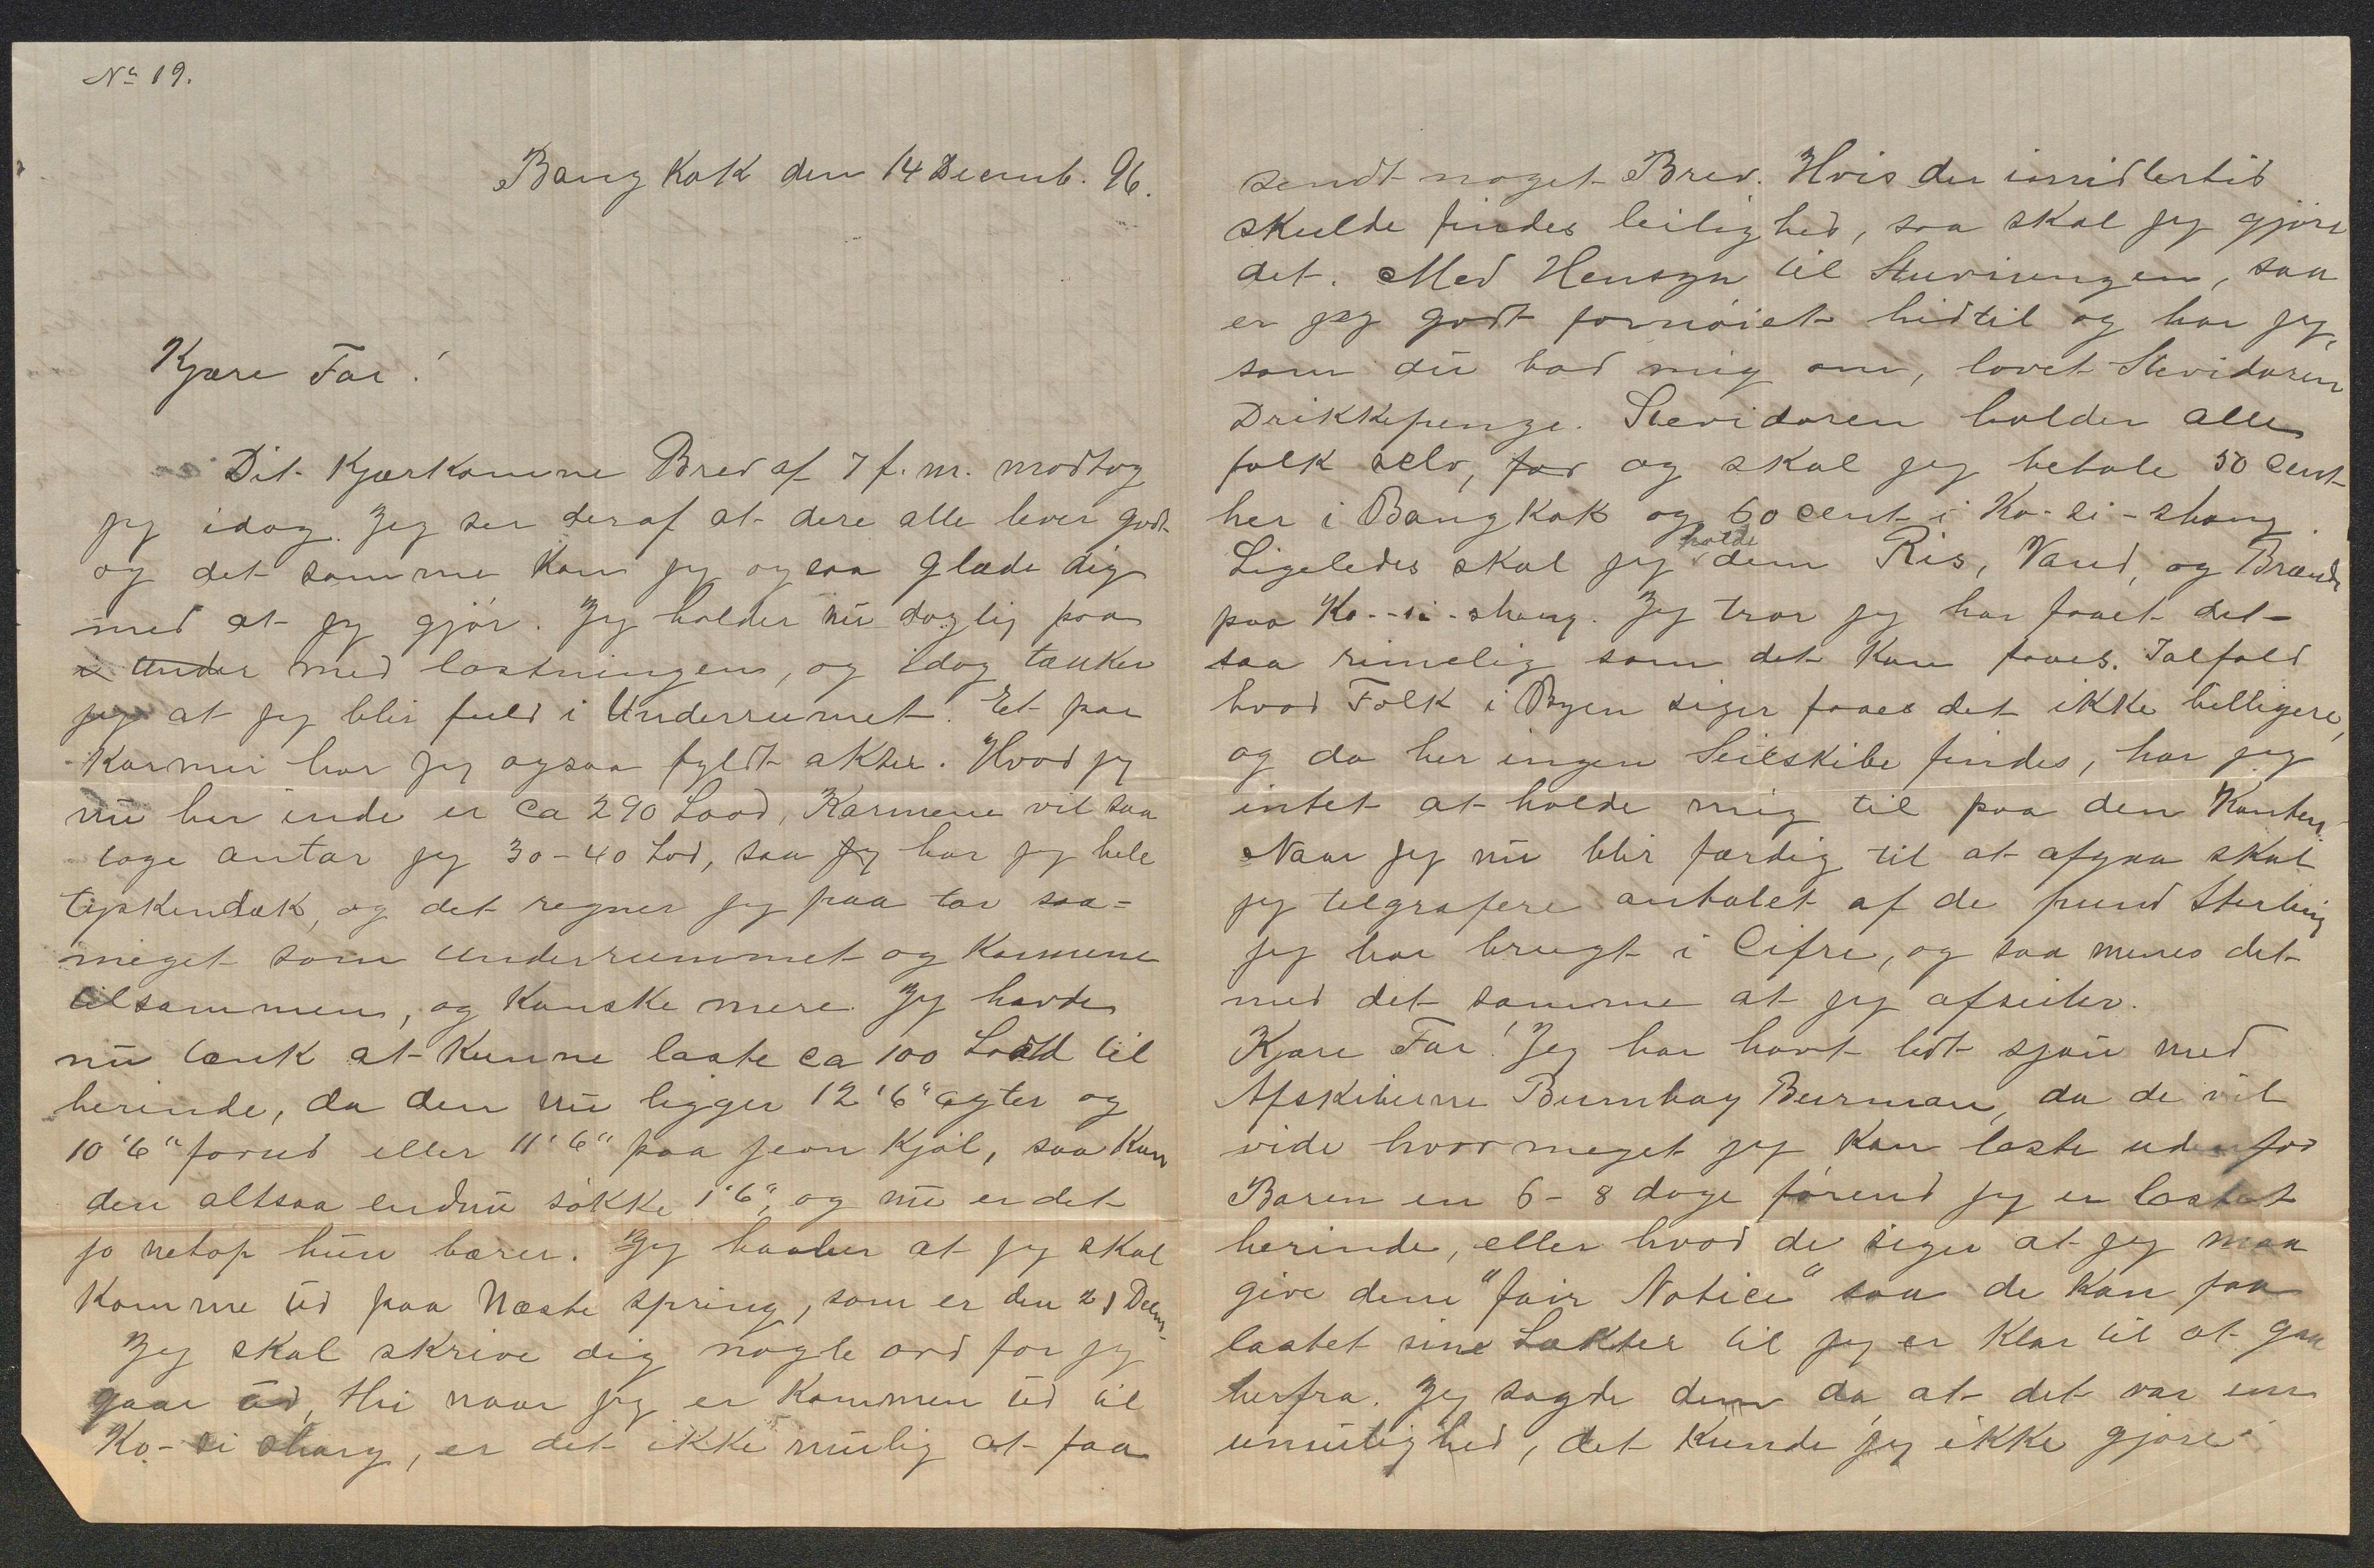 No 19.
Bang Kok den 14 Decemb. 96.
Kjære Far!
Dit Kjærkomne Brev af 7 f. m. modtog
jeg idag. Jeg ser deraf at dere alle lever godt
og det samme kan jeg ogsaa glæde dig
med at jeg gjør. Jeg holder nu daglig paa
i under med lastningen, og idag tænker
jeg at jeg blir fuld i Underrumet. Et par
Karmer har jeg ogsaa fyldt akter. Hvad jeg
nu har inde er ca 290 Laad, Karmene vil saa
tage antar jeg 30-40 Lod, saa jeg har jeg hele
tyskendæk, og det regner jeg paa tar saa-
meget som underrummet og Karmene
tilsammen, og kanske mere. Jeg havde
nu tænk at kunne laste ca 100 Loold til
herinde, da den nu ligger 12'6" agter og
10'6" forud eller 11'6" paa jevn Kjøl, saa Kan
den altsaa endnu søkke 1'6", og nu er det
jo netop hun bærer. Jeg haaber at jeg skal
komme ud paa Næste spring, som er den 21 Decm-
Jeg skal skrive dig nogle ord før jeg
gaar ud, thi naar jeg er kommen ud til
Ko-si shang, er det ikke mulig at faa
sendt noget Brev. Hvis der imidlertid
skulde findes leilighed, saa skal jeg gjøre
det. Med Hensyn til Stuvningen, saa
er jeg godt fornøiet hidtil og har jeg,
som du bad mig om, lovet Stevidoren
Drikkepenge. Stevidoren holder alle
folk selv, for og skal jeg betale 50 cent
her i Bang Kok og 60 cent i Ko-si-shang
Ligeledes skal jeg holde dem Ris, Vand, og Brænde
paa Ko--si-shang. Jeg tror jeg har faaet det-
saa rimelig som det kan faaes. Ialfald
hvad Folk i Byen siger faaes det ikke billigere,
og da her ingen Seilskibe findes, har jeg
intet at holde mig til paa den Kanten.
Naar jeg nu blir færdig til at afgaa skal
jeg telgrafere antalet af de pund Sterling
jeg har brugt i Cifre, og saa menes det
med det samme at jeg afseiler.
Kjære Far! Jeg har havt lidt sjau med
Afskiberne Bumbay Burman, da de vil
vide hvor meget jeg kan laste udenfor
Baren en 6-8 dage førend jeg er lastet
herinde, eller hvad de siger at jeg maa
give dem "fair Notice" saa de kan faa
lastet sine Lækter til jeg er klar til at gaa
herfra. Jeg sagde dem da at det var en
umulighed, det kunde jeg ikke gjøre